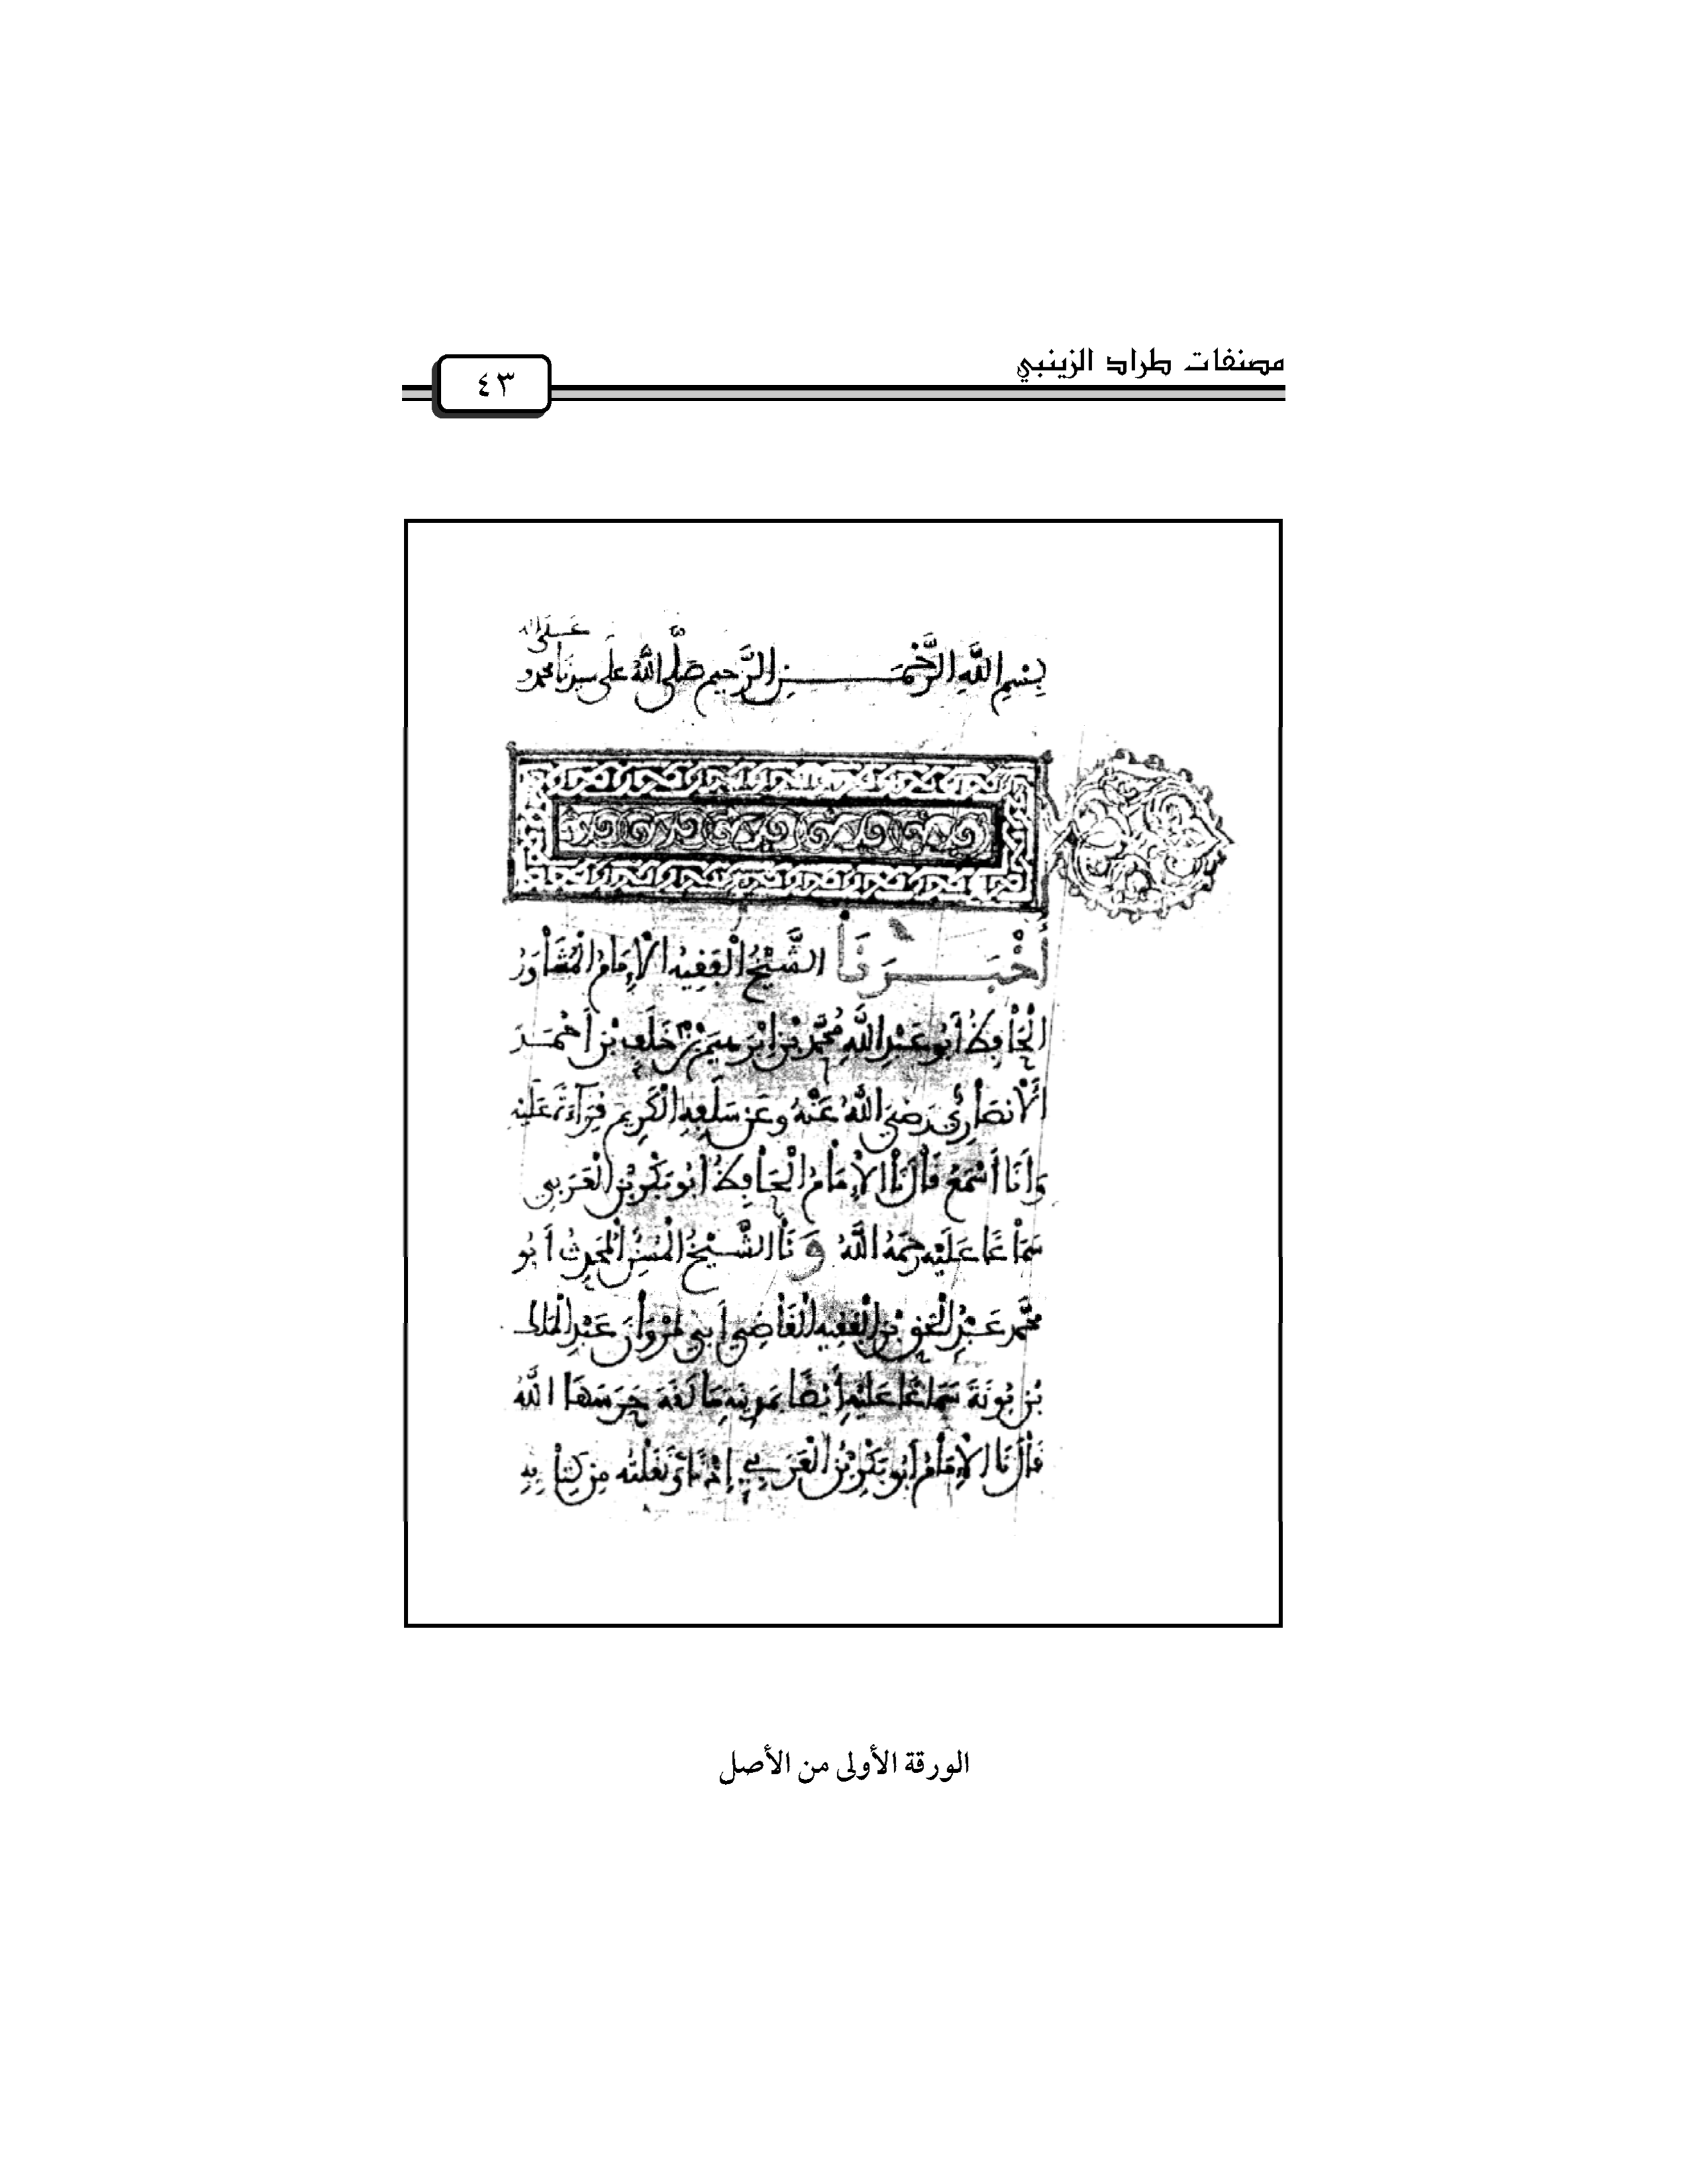 مصنفات طراد الزينبي
٤٣
بِسْمِ اللَّهِ الرَّحْمَنِ الرَّحِيمِ صَلَّى اللَّهُ عَلَى سيدنا محمد و
أَخْبَرَنَا الشَّيْخُ الْفَقِيهُ الْإِمَامُ الْمُشَاوَرُ
الْحَافِظُ أَبُو عَبْدِ اللَّهِ مُحَمَّدُ بْنُ إِبْرَهِيمَ بْنِ خَلَفِ بْنِ أَحْمَدَ
الْأَنْصَارِيُّ رَضِيَ اللَّهُ عَنْهُ وعَنْ سَلَفِهِ الْكَرِيمِ قِرَآءَةً عَلَيْهِ
وَأَنَا أَسْمَعُ قَالَ نَا الْإِمَامُ الْحَافِظُ أَبُو بَكْرِ بْنُ الْعَرَبِي
سَمَاعًا عَلَيْهِ رحمَهُ اللَّهُ وَنَا الشَّيْخُ الْمُسِنُّ الْمُحَدِثُ أَبُو
مُحَمَّد عَبْدُ الْحَقِ بْنُ الْفَقِيهِ الْقَاضِي أَبِي مَرْوَانَ عَبْدِ الْمَلك
بْنِ بُونَةَ سَمَاعًا عَلَيْهِ أَيْضًا بِمَدِينَةِ مَالَقَةَ حَرَسَهَا اللَّهُ
قَالَ نَا الْإِمَامُ أَبُو بَكْرِ بْنُ الْعَرَبِي إِذْنًا وَنَقَلْتُه مِنْ كِتَابِهِ
الورقة الأولى من الأصل